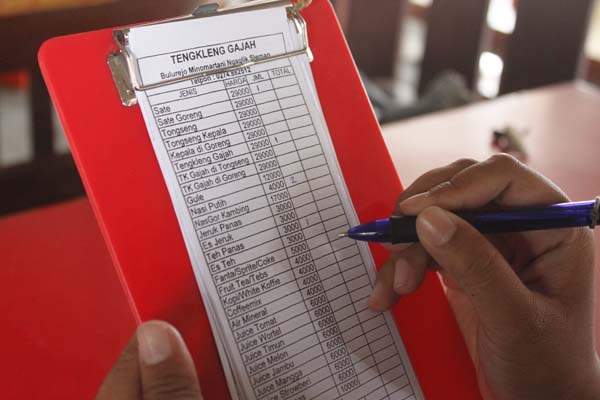 TENGKLENG GAJAH
Bulurejo Minomartani Ngaglik Sleman
Telpon : 0274.882512
JENIS HARGA JML TOTAL
Sate 29000 1
Sate Goreng 29000
Tongseng 29000
Tongseng Kepala 29000
Kepala di Goreng 29000
Tengkleng Gajah 29000 1
TK Gajah di Tongseng 29000
TK Gajah di Goreng 29000
Gule 12000
Nasi Putih 4000 2
NasGor Kambing 17000
Jeruk Panas 3000
Es Jeruk 3000 1
Teh Panas 3000
Es Teh 3000
Fanta/Sprite/Coke 5000
Fruit Tea/Tebs 4000
Kopi/White Koffie 4000
Coffeemix 4000
Air Mineral 4000
Juice Tomat 6000
Juice Wortel 6000
Juice Timun 6000
Juice Melon 6000
Juice Jambu 5000
Juice Mangga 6000
Juice Stroberi 10000